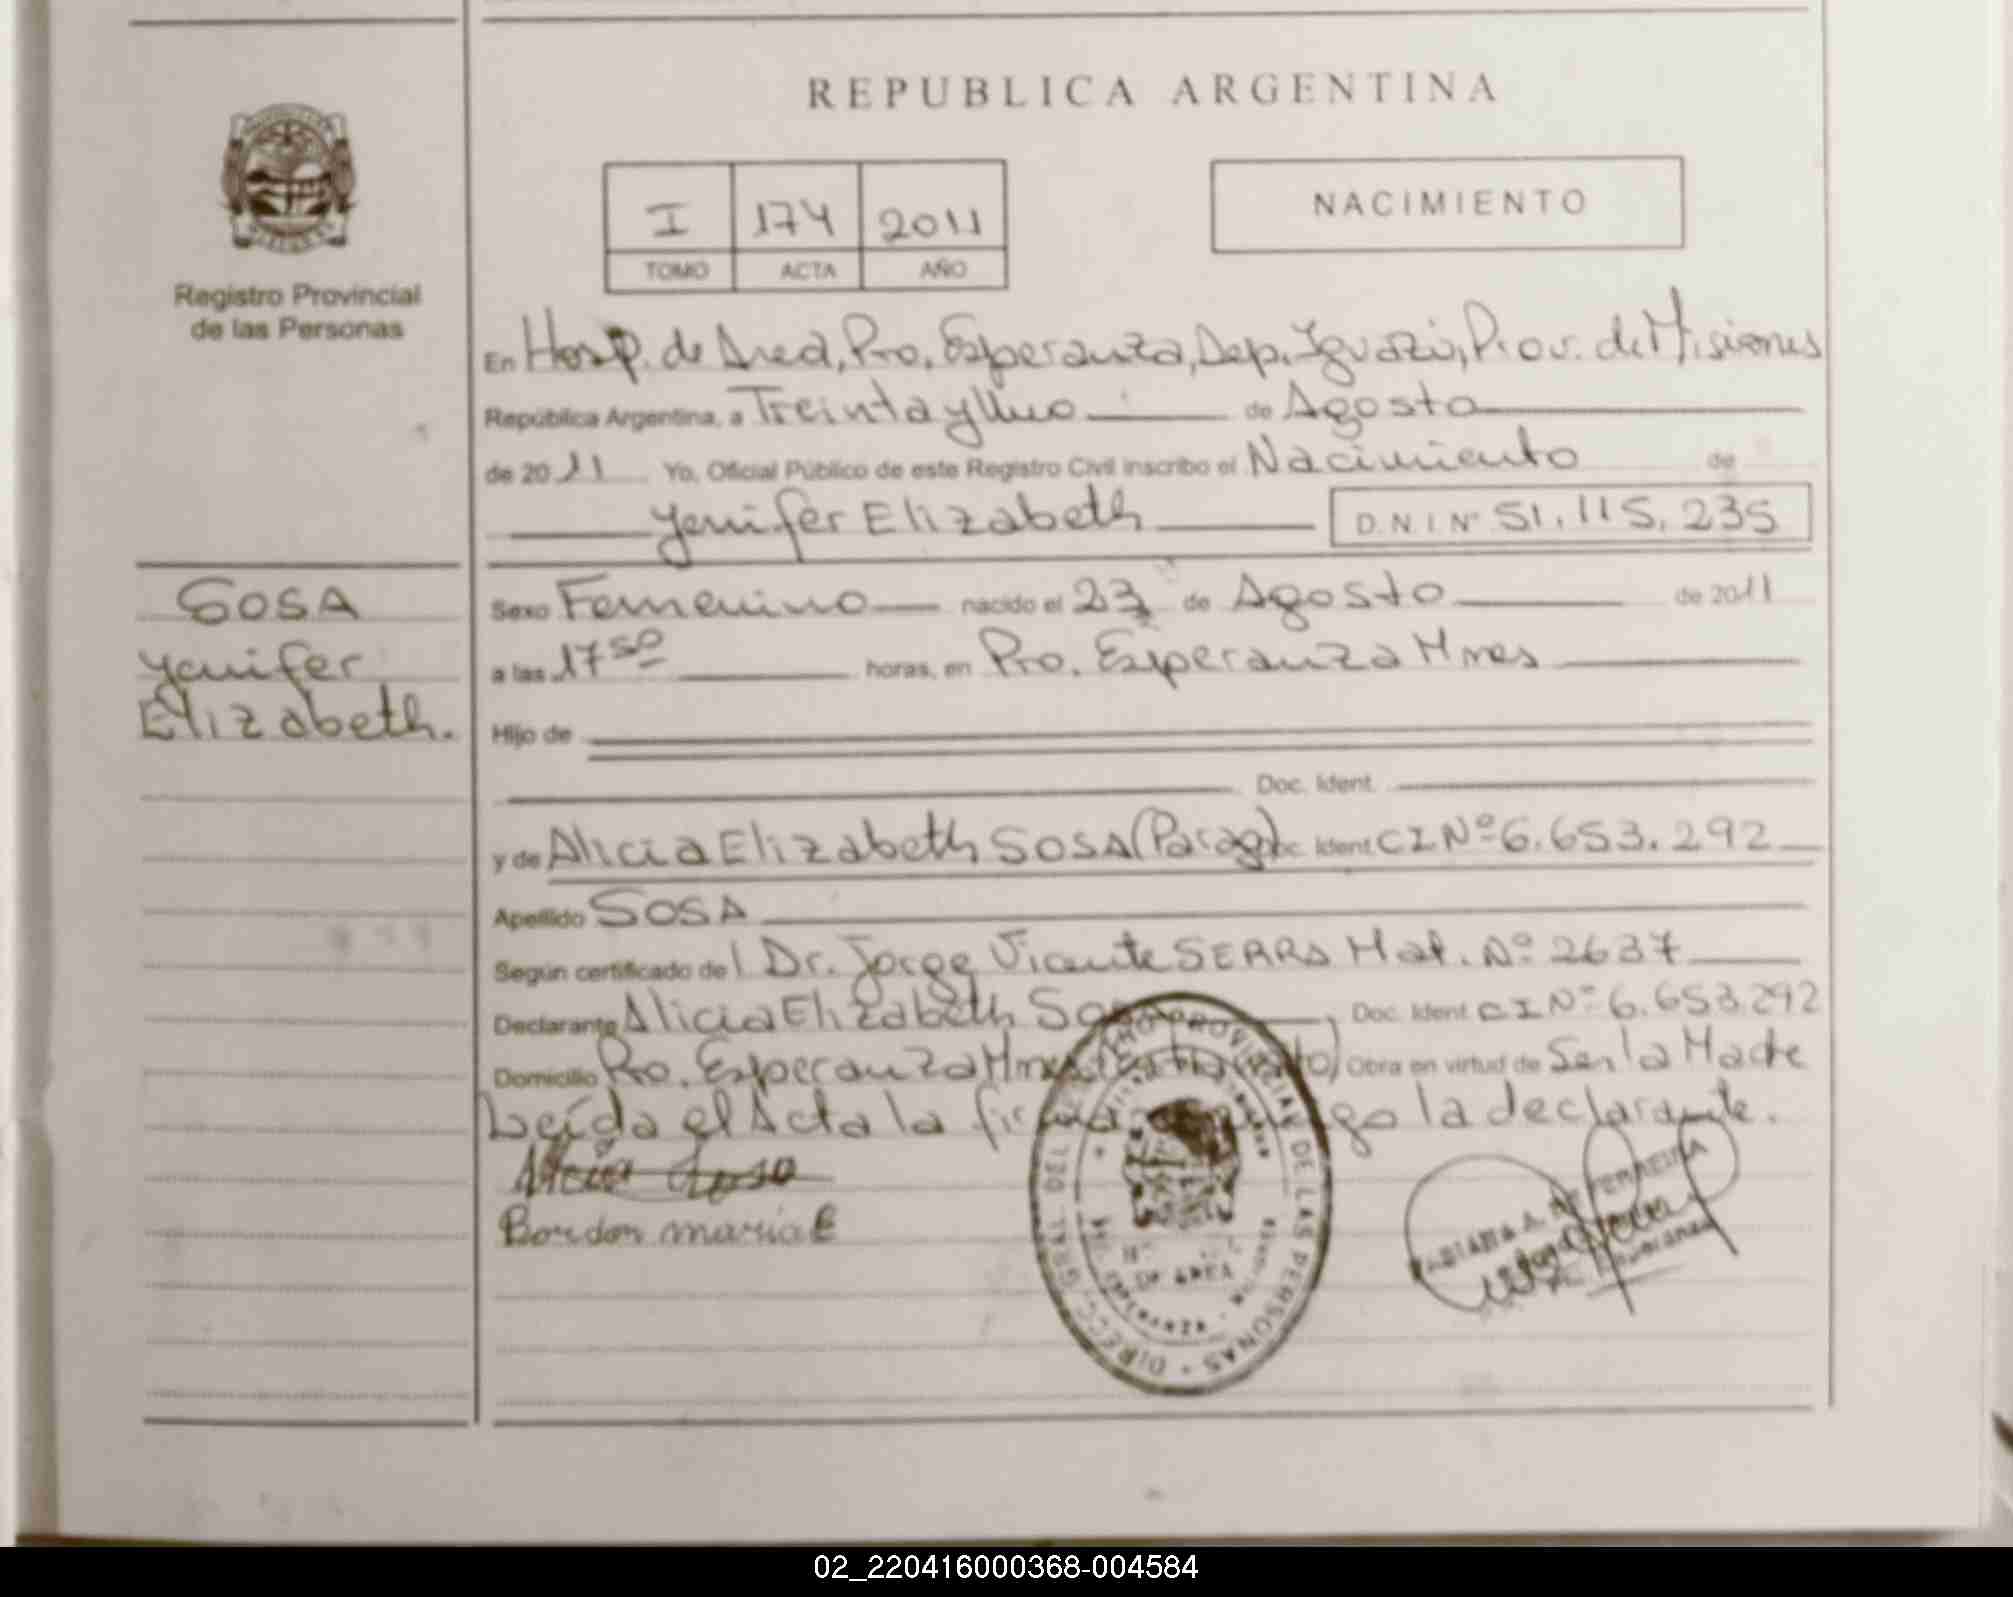 REPUBLICA ARGENTINA
Registro Provincial
de las Personas
I 174 2011
TOMO ACTA AÑO
NACIMIENTO
En Hosp. de Area, Pto. Esperanza, Dep. Iguazú, Prov. de Misiones
República Argentina, a Treinta y Uno de Agosto
de 2011 Yo, Oficial Público de este Registro Civil inscribo el Nacimiento de
Yenifer Elizabeth D.N.I Nº 51.115.235
SOSA
Yenifer
Elizabeth.
Sexo Femenino nacido el 23 de Agosto de 2011
a las 17 50 horas, en Pto. Esperanza Mnes
Hijo de
Doc. Ident.
y de Alicia Elizabeth SOSA (Parag) Doc. Ident. CI Nº 6.653.292
Apellido SOSA
Según certificado del Dr. Jorge Vicente SERRA Mat. Nº 2637
Declarante Alicia Elizabeth Sosa, Doc. Ident. CI Nº 6.653.292
Domicilio Pto. Esperanza Mnes Obra en virtud de Ser la Madre
Leída el Acta la firma conmigo la declarante.
Alicia Sosa
Bordon maria E
DIRECC. GRAL. DEL REGISTRO PROVINCIAL DE LAS PERSONAS
DE AREA
02_220416000368-004584